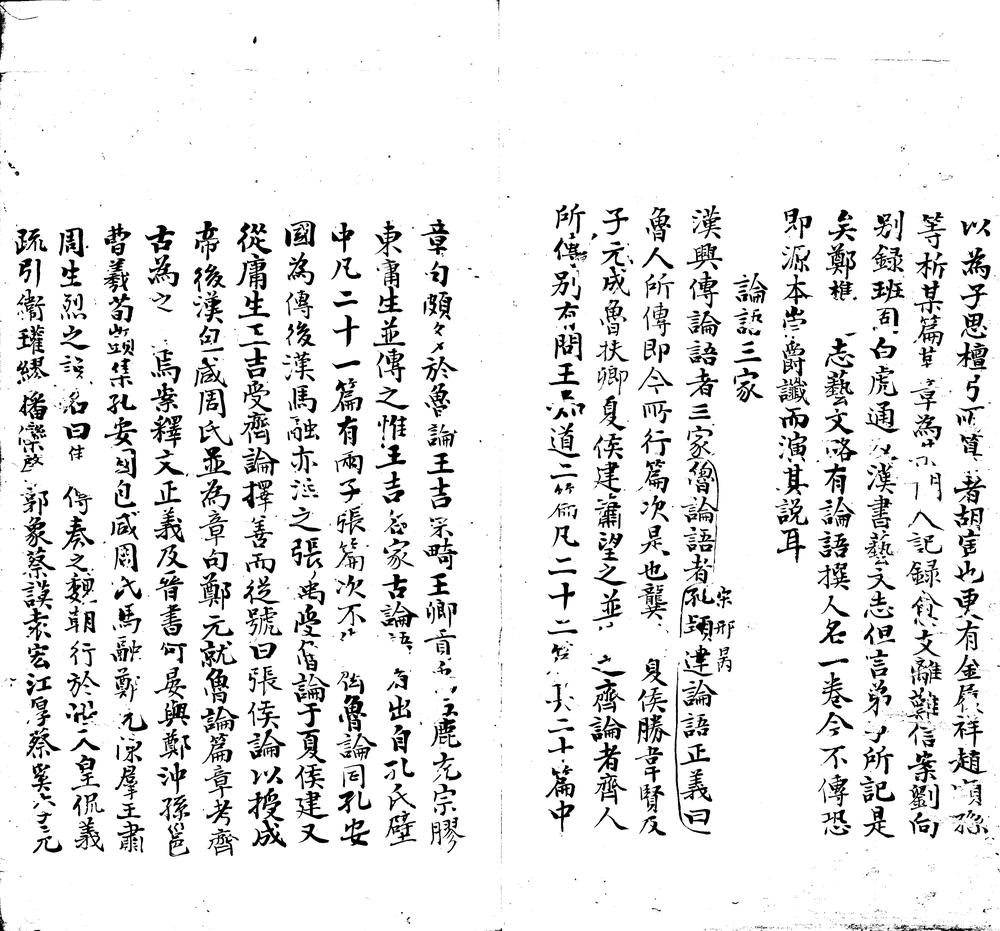 以為子思檀弓所算者胡寅也更有金履祥趙順孫
等析某篇某章為某門人記録食支離難信案劉向
别録班固白虎通及漢書藝文志但言弟子所記是
矣鄭樵 志藝文略有論語撰人名一卷今不傳恐
即源本崇爵讖而演其説耳
論語三家
漢興傳論語者三家魯論語者
宋邢昺
孔頴達論語正義曰
魯人所傳即今所行篇次是也龔 夏侯勝韋賢及
子元成魯扶卿夏侯建蕭望之並 之齊論者齊人
所傳别有問王知道二篇凡二十二篇其二十篇中
章句頗多於魯論王吉宋畸王卿貢禹 鹿充宗膠
東庸生並傳之惟王吉名家古論語 出自孔氏壁
中凡二十一篇有兩子張篇次不 魯論同孔安
國為傳後漢馬融亦注之張禹受魯論于夏侯建又
從庸生王吉受齊論擇善而從號曰張侯論以授成
帝後漢包咸周氏並為章句鄭元就魯論篇章考齊
古為之 焉案釋文正義及晉書何晏與鄭沖孫邕
曹羲荀顗集孔安國包咸周氏馬融鄭元陳羣王肅
周生烈之説名曰 奏之魏朝行於 皇侃義
疏引衛瓘繆播欒肇郭象蔡謨袁宏江厚蔡奚